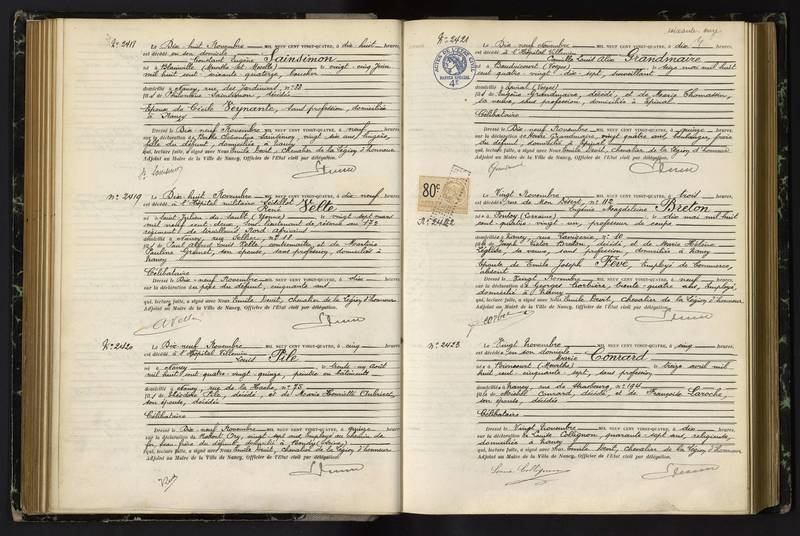 N° 2418
Le Dix huit Novembre MIL NEUF CENT VINGT-QUATRE, à dix huit heures,
est décédé en son domicile
Constant Eugène Sainsimon
né à Blainville (Meurthe et Moselle) le vingt cinq Juin
mil huit cent soixante quatorze,
domicilié à Nancy, rue des Jardiniers, n° 33
fils de Sainsimon, décédés
Epoux de Cécile Peynante, sans profession, domiciliée
à Nancy
Dressé le Dix-neuf Novembre MIL NEUF CENT VINGT-QUATRE, à neuf heures,
sur la déclaration de Sainsimon, vingt six ans,
fille du défunt, domiciliée à Nancy
qui, lecture faite, a signé avec Nous Emile Droit, Chevalier de la Légion d'honneur
Adjoint au Maire de la Ville de Nancy, Officier de l'Etat civil par délégation.
N° 2419
Le Dix huit Novembre MIL NEUF CENT VINGT-QUATRE, à dix neuf heures,
est décédé à l'hôpital militaire Sédillot
Henri Velte
né à Saint Julien du Sault (Yonne) le vingt sept mars
mil neuf cent deux, sous lieutenant de réserve au
régiment de tirailleurs Nord Africains
domicilié à Nancy, rue Sellier, n° 18
fils de Paul Alfred Louis Velte, contremaître, et de
Pauline, son épouse, sans profession, domiciliés à
Nancy
Célibataire
Dressé le Dix-neuf Novembre MIL NEUF CENT VINGT-QUATRE, à dix heures,
sur la déclaration du père du défunt, cinquante ans
qui, lecture faite, a signé avec Nous Emile Droit, Chevalier de la Légion d'honneur
Adjoint au Maire de la Ville de Nancy, Officier de l'Etat civil par délégation.
AVelte
N° 2420
Le Dix neuf Novembre MIL NEUF CENT VINGT-QUATRE, à cinq heures,
est décédé à l'Hôpital Villemin
Louis Pile
né à Nancy le trente un Août
mil huit cent quatre vingt quinze, peintre en bâtiments
domicilié à Nancy, rue de la Hache, n° 75
fils de Théodore Pile, décédé, et de Marie Henriette
son épouse, décédée
Célibataire
Dressé le Dix-neuf Novembre MIL NEUF CENT VINGT-QUATRE, à quinze heures,
sur la déclaration de Robert, vingt sept ans, employé au chemin de
fer, beau-frère du défunt, domicilié à
qui, lecture faite, a signé avec Nous Emile Droit, Chevalier de la Légion d'honneur
Adjoint au Maire de la Ville de Nancy, Officier de l'Etat civil par délégation.
soixante onze
N° 2421
Le Dix neuf Novembre MIL NEUF CENT VINGT-QUATRE, à dix heures,
est décédé à l'Hôpital Villemin
Camille Louis Grandmaire
né à Baudricourt (Vosges) le seize mai mil huit
cent quatre vingt dix sept, surveillant
domicilié à Epinal (Vosges)
fils de Eugène Grandmaire, décédé, et de Marie Thomassin,
sa veuve, sans profession, domiciliée à Epinal
Célibataire
Dressé le Dix neuf Novembre MIL NEUF CENT VINGT-QUATRE, à quinze heures,
sur la déclaration de Grandmaire, vingt quatre ans, boulanger, frère
du défunt, domicilié à Epinal
qui, lecture faite, a signé avec Nous Emile Droit, Chevalier de la Légion d'honneur
Adjoint au Maire de la Ville de Nancy, Officier de l'Etat civil par délégation.
80c
N° 2422
Le Vingt Novembre MIL NEUF CENT VINGT-QUATRE, à trois heures,
est décédée rue de Mon Désert, n° 112
Eugénie Magdeleine Breton
née à Toulon le dix mai mil huit
cent quatre vingt un, professeur de coupe
domiciliée à Nancy, rue, n° 10
fille de Joseph Victor Breton, décédé, et de Marie Hélène
son épouse, sans profession, domiciliée à Nancy
Epouse de Emile Joseph Fève, employé de commerce,
absent
Dressé le Vingt Novembre MIL NEUF CENT VINGT-QUATRE, à dix heures,
sur la déclaration de Georges Corbière, trente-quatre ans, employé,
domicilié à Nancy
qui, lecture faite, a signé avec Nous Emile Droit, Chevalier de la Légion d'honneur
Adjoint au Maire de la Ville de Nancy, Officier de l'Etat civil par délégation.
N° 2423
Le Vingt Novembre MIL NEUF CENT VINGT-QUATRE, à cinq heures,
est décédée en son domicile
Marie Conrard
née à (Meurthe) le treize avril mil
huit cent cinquante sept, sans profession
domiciliée à Nancy, rue de Strasbourg, n° 194
fille de Michel Conrard, décédé, et de Françoise Laroche,
son épouse, décédée
Célibataire
Dressé le Vingt Novembre MIL NEUF CENT VINGT-QUATRE, à dix heures,
sur la déclaration de Louise Collignon, quarante sept ans, religieuse,
domiciliée à Nancy
qui, lecture faite, a signé avec Nous Emile Droit, Chevalier de la Légion d'honneur
Adjoint au Maire de la Ville de Nancy, Officier de l'Etat civil par délégation.
Louise Collignon